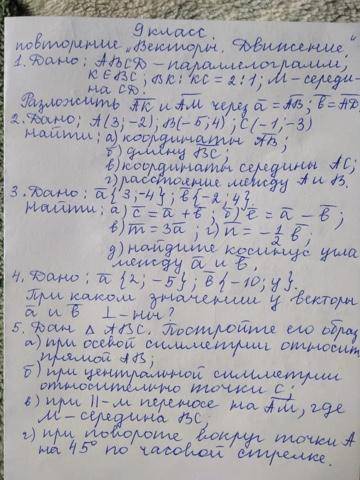 9 класс
повторение „Векторы. Движение"
1. Дано: ABCD - параллелограмм;
K∈BC; BK:KC = 2:1; M-середи-
на CD.
Разложить AK и AM через a=AB; b=AD
2. Дано; A(3;-2); B(-5;4); C(-1;-3)
найти; а) координаты AB;
б) длину BC;
в) координаты середины AC;
г) расстояние между A и B.
3. Дано: a{3;-4}; b{-2;4}
Найти; а) c = a + b; б) e = a - b;
в) m = 3a; г) n = -1/2 b;
д) найдите косинус угла
между a и b.
4. Дано: a{2;-5}; b{-10;y}.
При каком значении y векторы
a и b ⊥-ны?
5. Дан △ABC. Постройте его образ
а) при осевой симметрии относит
прямой AB;
б) при центральной симметрии
относительно точки C;
в) при II-м переносе на AM, где
M-середина BC,
г) при повороте вокруг точки A
на 45° по часовой стрелке.